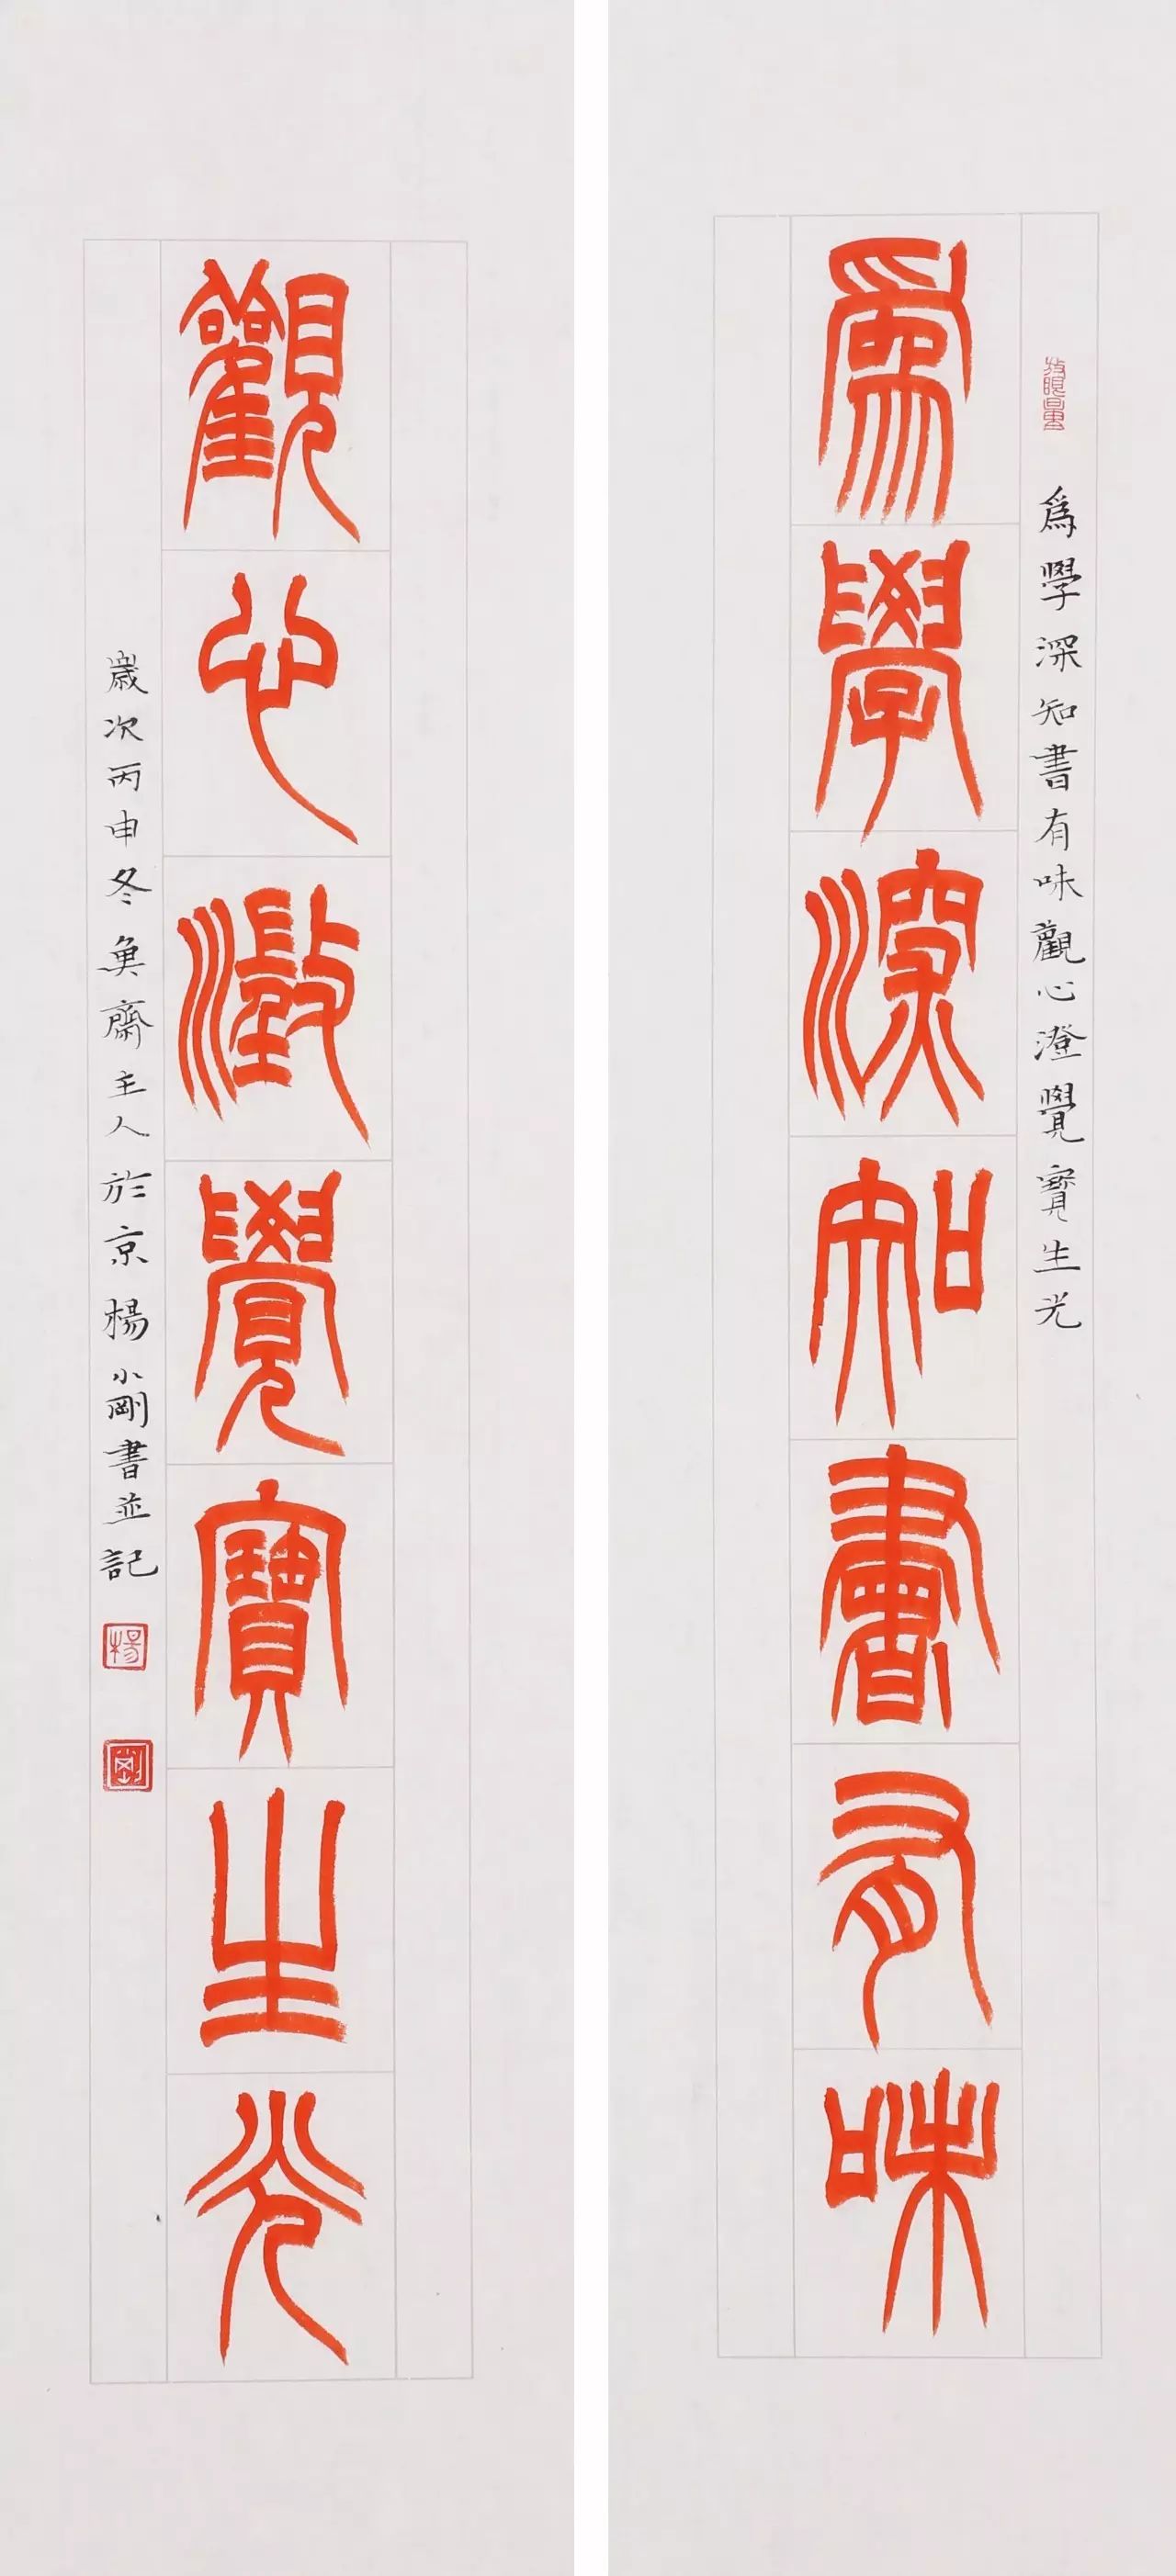 為學深知書有味
為學深知書有味觀心澄覺寶生光
觀心澂覺寶生光
歲次丙申冬魚齋主人於京楊小剛書並記
楊